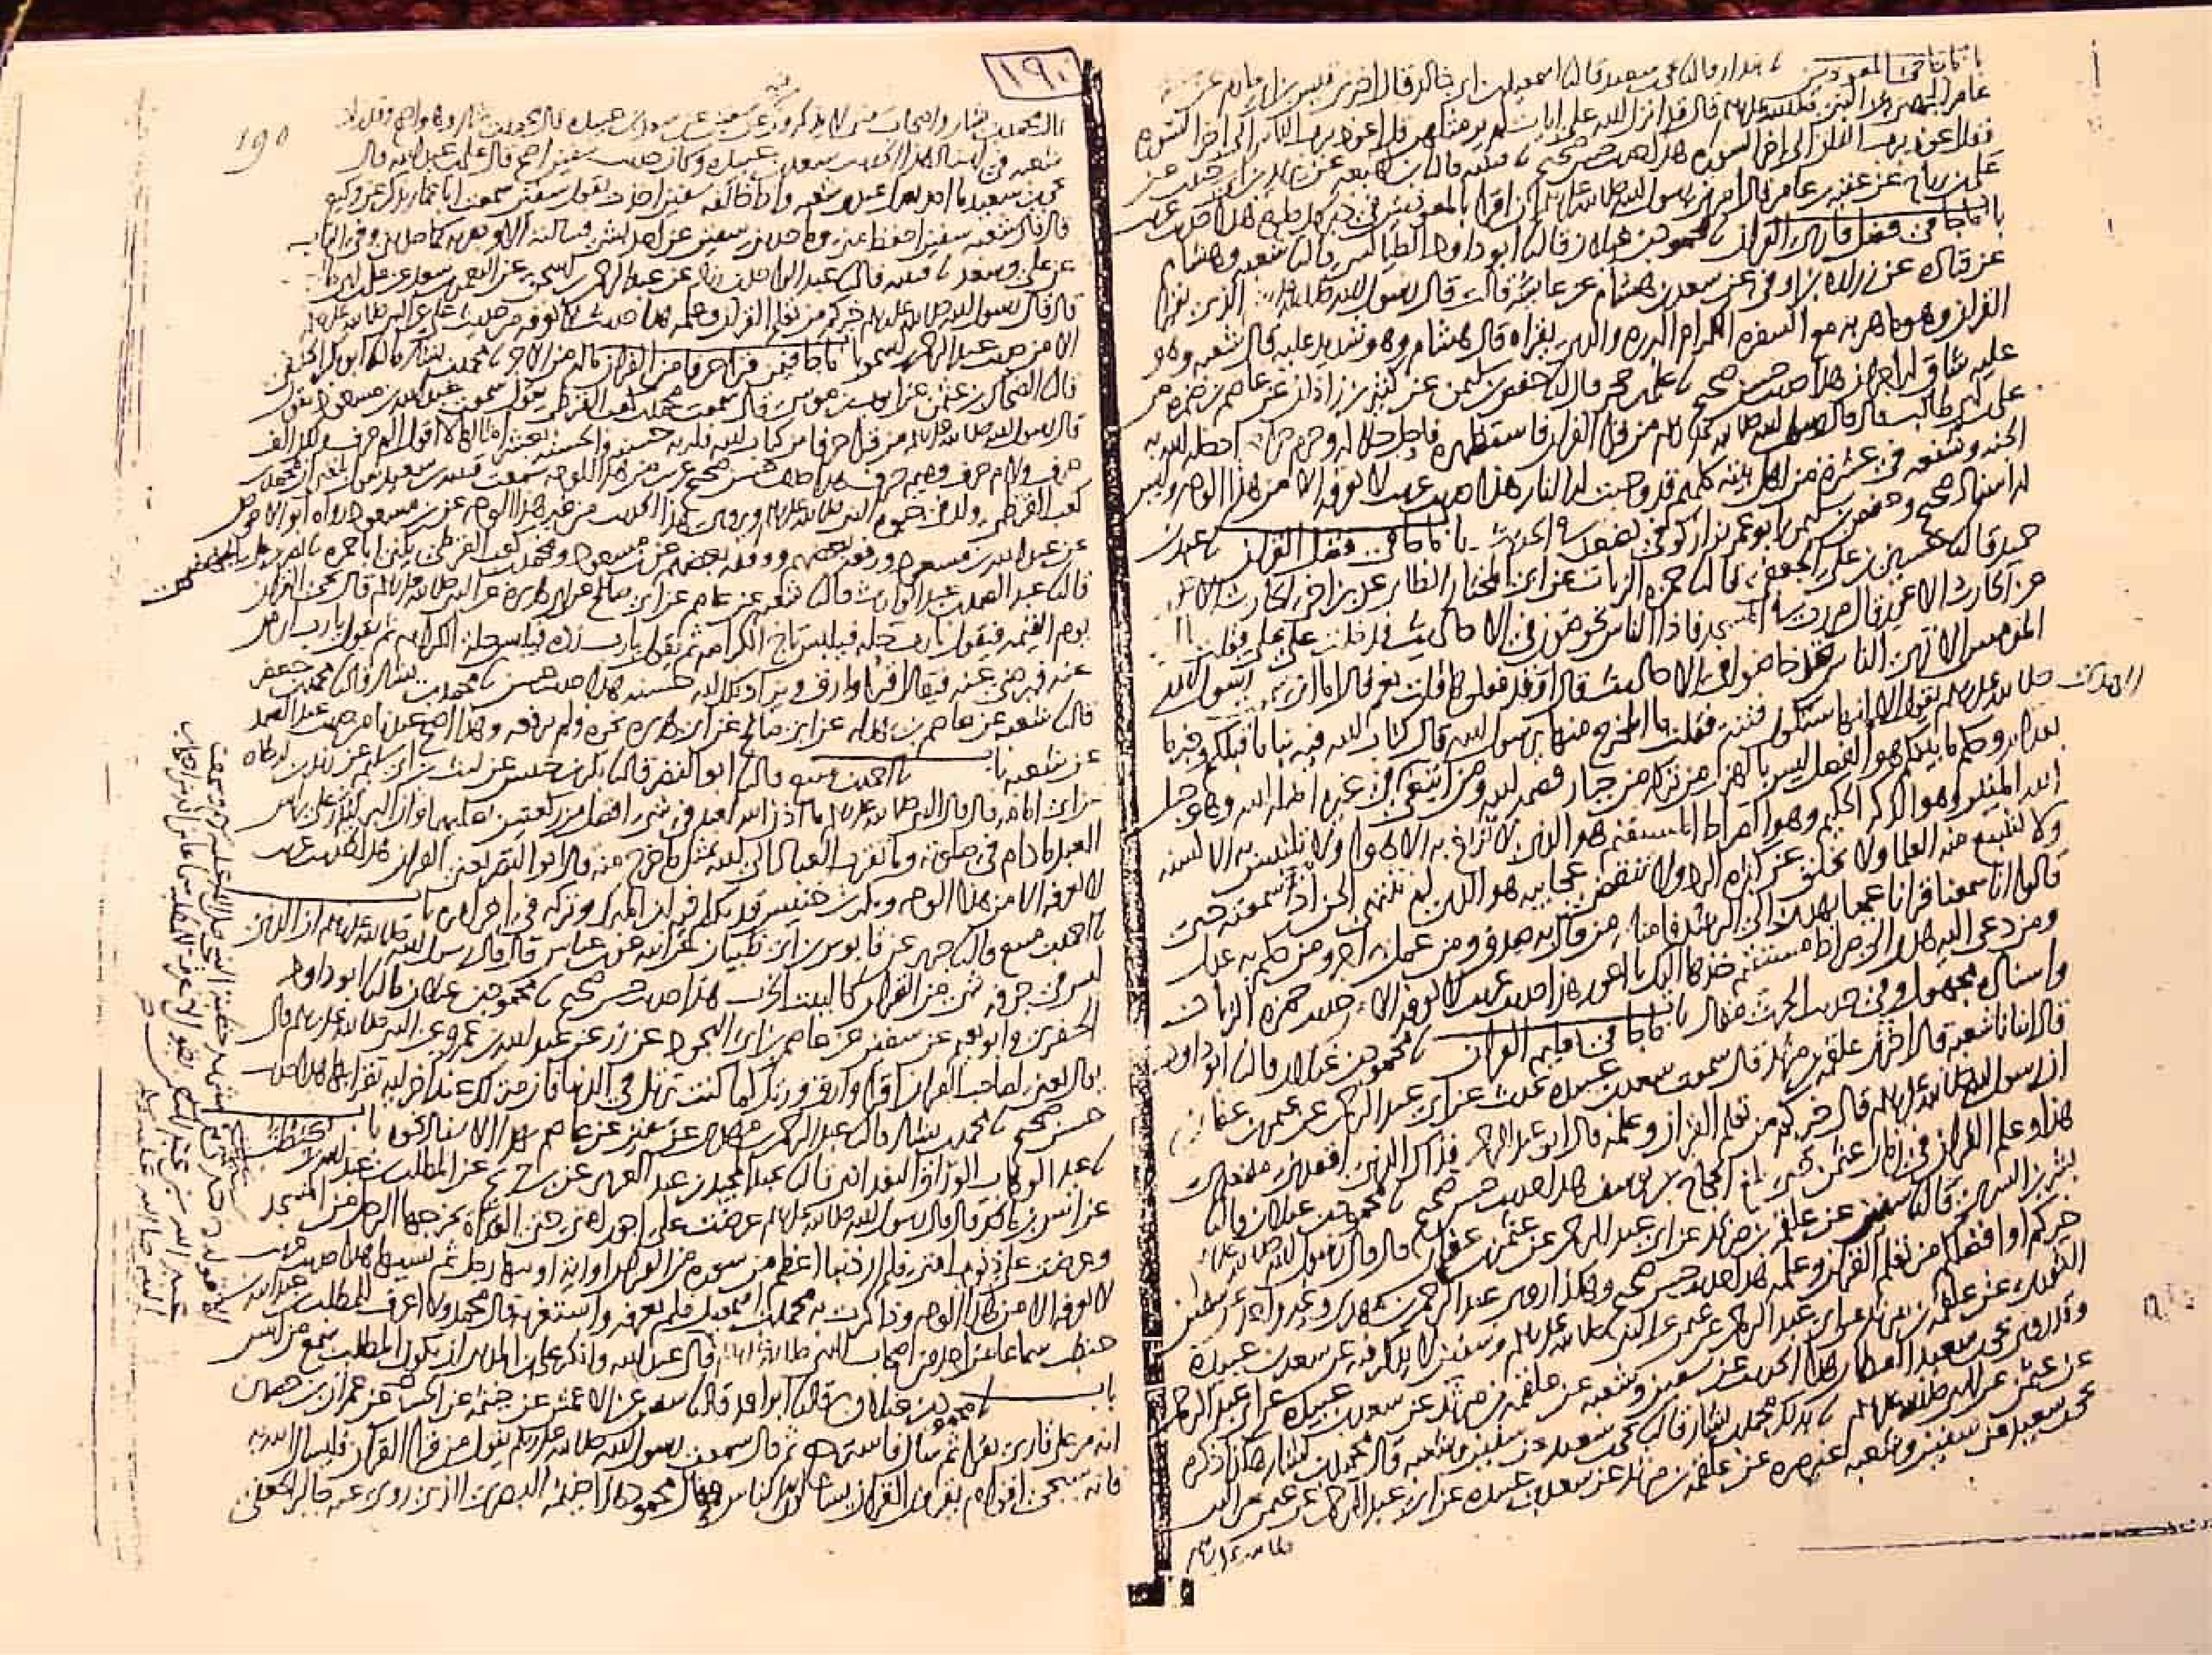 باب ما جا في المعوذتين ثنا بندار قال ثنا يحيى بن سعيد قال ثنا اسمعيل بن ابي خالد قال اخبرني قيس بن ابي حازم عن عقبة بن
عامر الجهني عن النبي صلى الله عليه وسلم قال قد انزل الله علي ايات لم ير مثلهن قل اعوذ برب الناس الى اخر السورة
وقل اعوذ برب الفلق الى اخر السورة هذا حديث حسن صحيح ثنا قتيبة قال ثنا ابن لهيعة عن يزيد بن ابي حبيب عن
علي بن رباح عن عقبة بن عامر قال امرني رسول الله صلى الله عليه وسلم ان اقرا بالمعوذتين في دبر كل صلاة هذا حديث غريب
باب ما جا في فضل قاري القران ثنا محمود بن غيلان قال ثنا ابو داود الطيالسي قال ثنا شعبة وهشام
عن قتادة عن زرارة بن اوفى عن سعد بن هشام عن عائشة قالت قال رسول الله صلى الله عليه وسلم الذي يقرا
القران وهو ماهر به مع السفرة الكرام البررة والذي يقراه قال هشام وهو شديد عليه قال شعبة وهو
عليه شاق له اجران هذا حديث حسن صحيح ثنا علي بن حجر قال ثنا حفص بن سليمن عن كثير بن زاذان عن عاصم بن ضمرة عن
علي بن ابي طالب قال قال رسول الله صلى الله عليه وسلم من قرا القران فاستظهره فاحل حلاله وحرم حرامه ادخله الله به
الجنة وشفعه في عشرة من اهل بيته كلهم قد وجبت له النار هذا حديث غريب لا نعرفه الا من هذا الوجه وليس
له اسناد صحيح وحفص بن سليمن ابو عمر بزاز كوفي يضعف في الحديث باب ما جا في فضل القران ثنا عبد بن
حميد قال ثنا حسين بن علي الجعفي قال ثنا حمزة الزيات عن ابي المختار الطائي عن ابن اخي الحارث الاعور
عن الحارث الاعور قال مررت في المسجد فاذا الناس يخوضون في الاحاديث فدخلت على علي فقلت يا
امير المومنين الا ترى الناس قد خاضوا في الاحاديث قال اوقد فعلوها قلت نعم قال اما اني سمعت رسول الله
صلى الله عليه وسلم يقول الا انها ستكون فتنة فقلت ما المخرج منها يرسول الله قال كتاب الله فيه نبا ما قبلكم وخبر ما
بعدكم وحكم ما بينكم هو الفصل ليس بالهزل من تركه من جبار قصمه الله ومن ابتغى الهدى في غيره اضله الله وهو حبل
الله المتين وهو الذكر الحكيم وهو الصراط المستقيم هو الذي لا تزيغ به الاهوا ولا تلتبس به الالسنة
ولا يشبع منه العلما ولا يخلق عن كثرة الرد ولا تنقضي عجايبه هو الذي لم تنته الجن اذ سمعته حتى
قالوا انا سمعنا قرانا عجبا يهدي الى الرشد فامنا به من قال به صدق ومن عمل به اجر ومن حكم به عدل
ومن دعى اليه هدى الى صراط مستقيم خذها اليك يا اعور هذا حديث غريب لا نعرفه الا من حديث حمزة الزيات
واسناده مجهول وفي حديث الحرث مقال باب ما جا في تعليم القران ثنا محمود بن غيلان قال ثنا ابو داود
قال انبانا شعبة قال اخبرني علقمة بن مرثد قال سمعت سعد بن عبيدة يحدث عن ابي عبد الرحمن عن عثمن بن عفان
ان رسول الله صلى الله عليه وسلم قال خيركم من تعلم القران وعلمه قال ابو عبد الرحمن فذاك الذي اقعدني مقعدي
هذا وعلم القران في زمان عثمن حتى بلغ الحجاج بن يوسف هذا حديث حسن صحيح ثنا محمود بن غيلان قال ثنا
بشر بن السري قال ثنا سفين عن علقمة بن مرثد عن ابي عبد الرحمن عن عثمن بن عفان قال قال رسول الله صلى الله عليه وسلم
خيركم او افضلكم من تعلم القران وعلمه هذا حديث حسن صحيح وهكذا روى عبد الرحمن بن مهدي وغير واحد عن سفين
الثوري عن علقمة بن مرثد عن ابي عبد الرحمن عن عثمن عن النبي صلى الله عليه وسلم وسفين لا يذكر فيه عن سعد بن عبيدة
وقد روى يحيى بن سعيد القطان هذا الحديث عن سفين وشعبة عن علقمة بن مرثد عن سعد بن عبيدة عن ابي عبد الرحمن
عن عثمن عن النبي صلى الله عليه وسلم ثنا بذلك محمد بن بشار قال ثنا يحيى بن سعيد عن سفين وشعبة قال محمد بن بشار هكذا ذكره
يحيى بن سعيد عن سفين وشعبة غير مرة عن علقمة بن مرثد عن سعد بن عبيدة عن ابي عبد الرحمن عن عثمن عن النبي
صلى الله عليه وسلم
١٩٠
190
قال محمد بن بشار واصحاب سفين لا يذكرون فيه عن سفين عن سعد بن عبيدة قال محمد بن بشار وهو اصح وقد زاد
شعبة في اسناد هذا الحديث سعد بن عبيدة وكان حديث سفين اصح قال علي بن عبد الله قال
يحيى بن سعيد ما احد يعدل عندي شعبة واذا خالفه سفين اخذت بقول سفين سمعت ابا عمار يذكر عن وكيع
قال قال شعبة سفين احفظ مني وما حدثني سفين عن احد بشي فسالته الا وجدته كما حدثني وفي الباب
عن علي وسعد ثنا قتيبة قال ثنا عبد الواحد بن زياد عن عبد الرحمن بن اسحق عن النعمن بن سعد عن علي بن ابي طالب
قال قال رسول الله صلى الله عليه وسلم خيركم من تعلم القران وعلمه هذا حديث لا نعرفه من حديث علي عن النبي صلى الله عليه وسلم
الا من حديث عبد الرحمن بن اسحق باب ما جا فيمن قرا حرفا من القران ما له من الاجر ثنا محمد بن بشار قال ثنا ابو بكر الحنفي
قال ثنا الضحاك بن عثمن عن ايوب بن موسى قال سمعت محمد بن كعب القرظي يقول سمعت عبد الله بن مسعود يقول
قال رسول الله صلى الله عليه وسلم من قرا حرفا من كتاب الله فله به حسنة والحسنة بعشر امثالها لا اقول الم حرف ولكن الف
حرف ولام حرف وميم حرف هذا حديث حسن صحيح غريب من هذا الوجه سمعت قتيبة بن سعيد يقول بلغني ان محمد بن
كعب القرظي ولد في حيوة النبي صلى الله عليه وسلم ويروى هذا الحديث من غير هذا الوجه عن ابن مسعود رواه ابو الاحوص
عن عبد الله بن مسعود ورفعه بعضهم ووقفه بعضهم عن ابن مسعود ومحمد بن كعب القرظي يكنى ابا حمزة ثنا نصر بن علي الجهضمي
قال ثنا عبد الصمد بن عبد الوارث قال ثنا شعبة عن عاصم عن ابي صالح عن ابي هريرة عن النبي صلى الله عليه وسلم قال يجي القران
يوم القيمة فيقول يا رب حله فيلبس تاج الكرامة ثم يقول يا رب زده فيلبس حلة الكرامة ثم يقول يا رب ارض
عنه فيرضى عنه فيقال اقرا وارق ويزاد بكل اية حسنة هذا حديث حسن ثنا محمد بن بشار قال ثنا محمد بن جعفر
قال ثنا شعبة عن عاصم بن بهدلة عن ابي صالح عن ابي هريرة نحوه ولم يرفعه وهذا اصح عندنا من حديث عبد الصمد
عن شعبة باب ثنا احمد بن منيع قال ثنا ابو النضر قال ثنا بكر بن خنيس عن ليث بن ابي سليم عن زيد بن ارطاة
عن ابي امامة قال قال النبي صلى الله عليه وسلم ما اذن الله لعبد في شي افضل من ركعتين يصليهما وان البر ليذر على راس
العبد ما دام في صلاته وما تقرب العباد الى الله بمثل ما خرج منه قال ابو النضر يعني القران هذا حديث غريب
لا نعرفه الا من هذا الوجه وبكر بن خنيس قد تكلم فيه ابن المبارك وتركه في اخر امره باب
ثنا احمد بن منيع قال ثنا جرير عن قابوس بن ابي ظبيان عن ابيه عن ابن عباس قال قال رسول الله صلى الله عليه وسلم ان الذي
ليس في جوفه شي من القران كالبيت الخرب هذا حديث حسن صحيح ثنا محمود بن غيلان قال ثنا ابو داود
الحفري وابو نعيم عن سفين عن عاصم بن ابي النجود عن زر عن عبد الله بن عمرو عن النبي صلى الله عليه وسلم قال
يقال يعني لصاحب القران اقرا وارق ورتل كما كنت ترتل في الدنيا فان منزلتك عند اخر اية تقرا بها هذا حديث
حسن صحيح ثنا محمد بن بشار قال ثنا عبد الرحمن بن مهدي عن سفين عن عاصم بهذا الاسناد نحوه باب
ثنا عبد الوهاب الوراق البغدادي قال ثنا عبد المجيد بن عبد العزيز عن ابن جريج عن المطلب بن عبد الله بن حنطب
عن انس بن مالك قال قال رسول الله صلى الله عليه وسلم عرضت علي اجور امتي حتى القذاة يخرجها الرجل من المسجد
وعرضت علي ذنوب امتي فلم ار ذنبا اعظم من سورة من القران او اية اوتيها رجل ثم نسيها هذا حديث غريب
لا نعرفه الا من هذا الوجه وذاكرت به محمد بن اسمعيل فلم يعرفه واستغربه قال محمد ولا اعرف للمطلب بن عبد الله بن
حنطب سماعا من احد من اصحاب النبي صلى الله عليه وسلم قال عبد الله وانكر علي بن المديني ان يكون المطلب سمع من انس
باب ثنا محمود بن غيلان قال ثنا ابو احمد قال ثنا سفين عن الاعمش عن خيثمة عن الحسن عن عمران بن حصين
انه مر على قاري يقرا ثم سال فاسترجع ثم قال سمعت رسول الله صلى الله عليه وسلم يقول من قرا القران فليسال الله به
فانه سيجي اقوام يقرون القران يسالون به الناس وقال محمود هذا خيثمة البصري الذي روى عنه جابر الجعفي